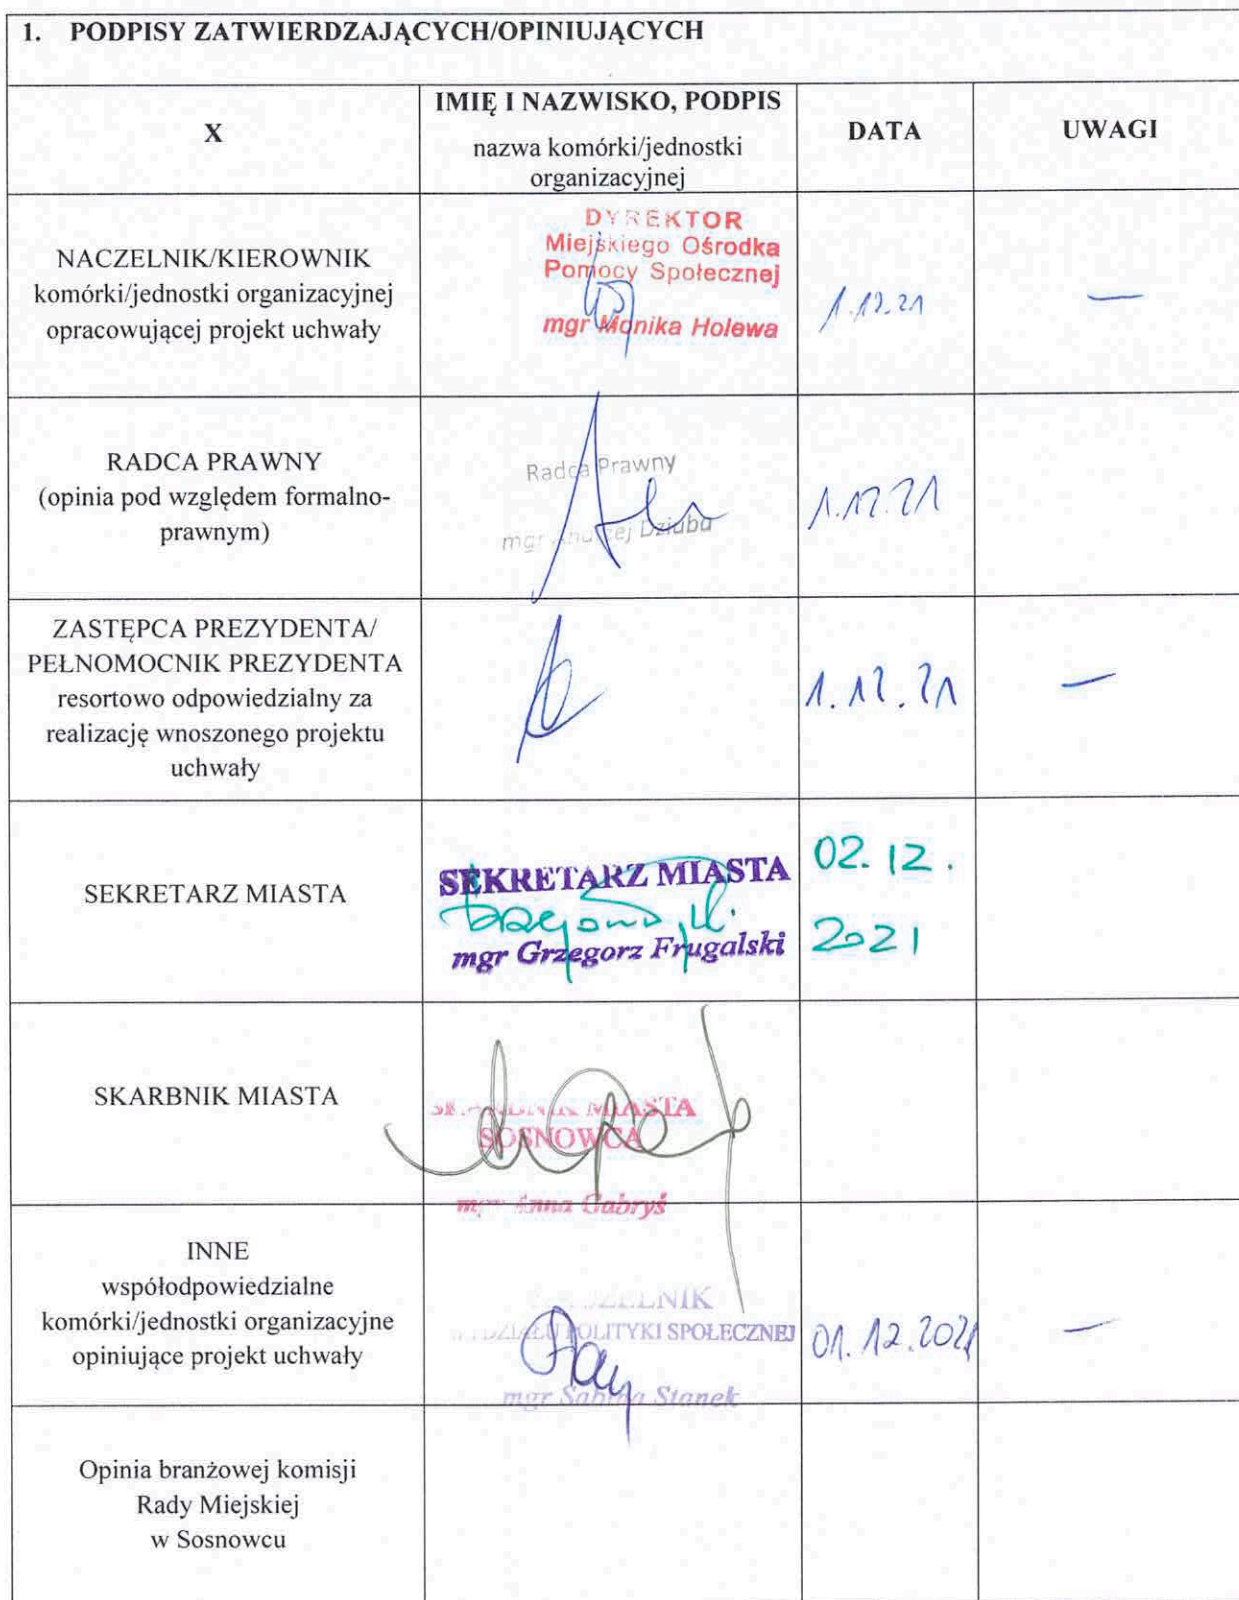 1. PODPISY ZATWIERDZAJĄCYCH/OPINIUJĄCYCH
X
IMIĘ I NAZWISKO, PODPIS
nazwa komórki/jednostki
organizacyjnej
DATA
UWAGI
NACZELNIK/KIEROWNIK
komórki/jednostki organizacyjnej
opracowującej projekt uchwały
DYREKTOR
Miejskiego Ośrodka
Pomocy Społecznej
mgr Monika Holewa
1.12.21
—
RADCA PRAWNY
(opinia pod względem formalno-
prawnym)
Radca Prawny
mgr Andrzej Dziuba
1.12.21
ZASTĘPCA PREZYDENTA/
PEŁNOMOCNIK PREZYDENTA
resortowo odpowiedzialny za
realizację wnoszonego projektu
uchwały
1.12.21
—
SEKRETARZ MIASTA
SEKRETARZ MIASTA
mgr Grzegorz Frugalski
02.12.
2021
SKARBNIK MIASTA
SKARBNIK MIASTA
SOSNOWCA
mgr Anna Gabryś
INNE
współodpowiedzialne
komórki/jednostki organizacyjne
opiniujące projekt uchwały
NACZELNIK
WYDZIAŁU POLITYKI SPOŁECZNEJ
mgr Sabina Stanek
01.12.2021
—
Opinia branżowej komisji
Rady Miejskiej
w Sosnowcu